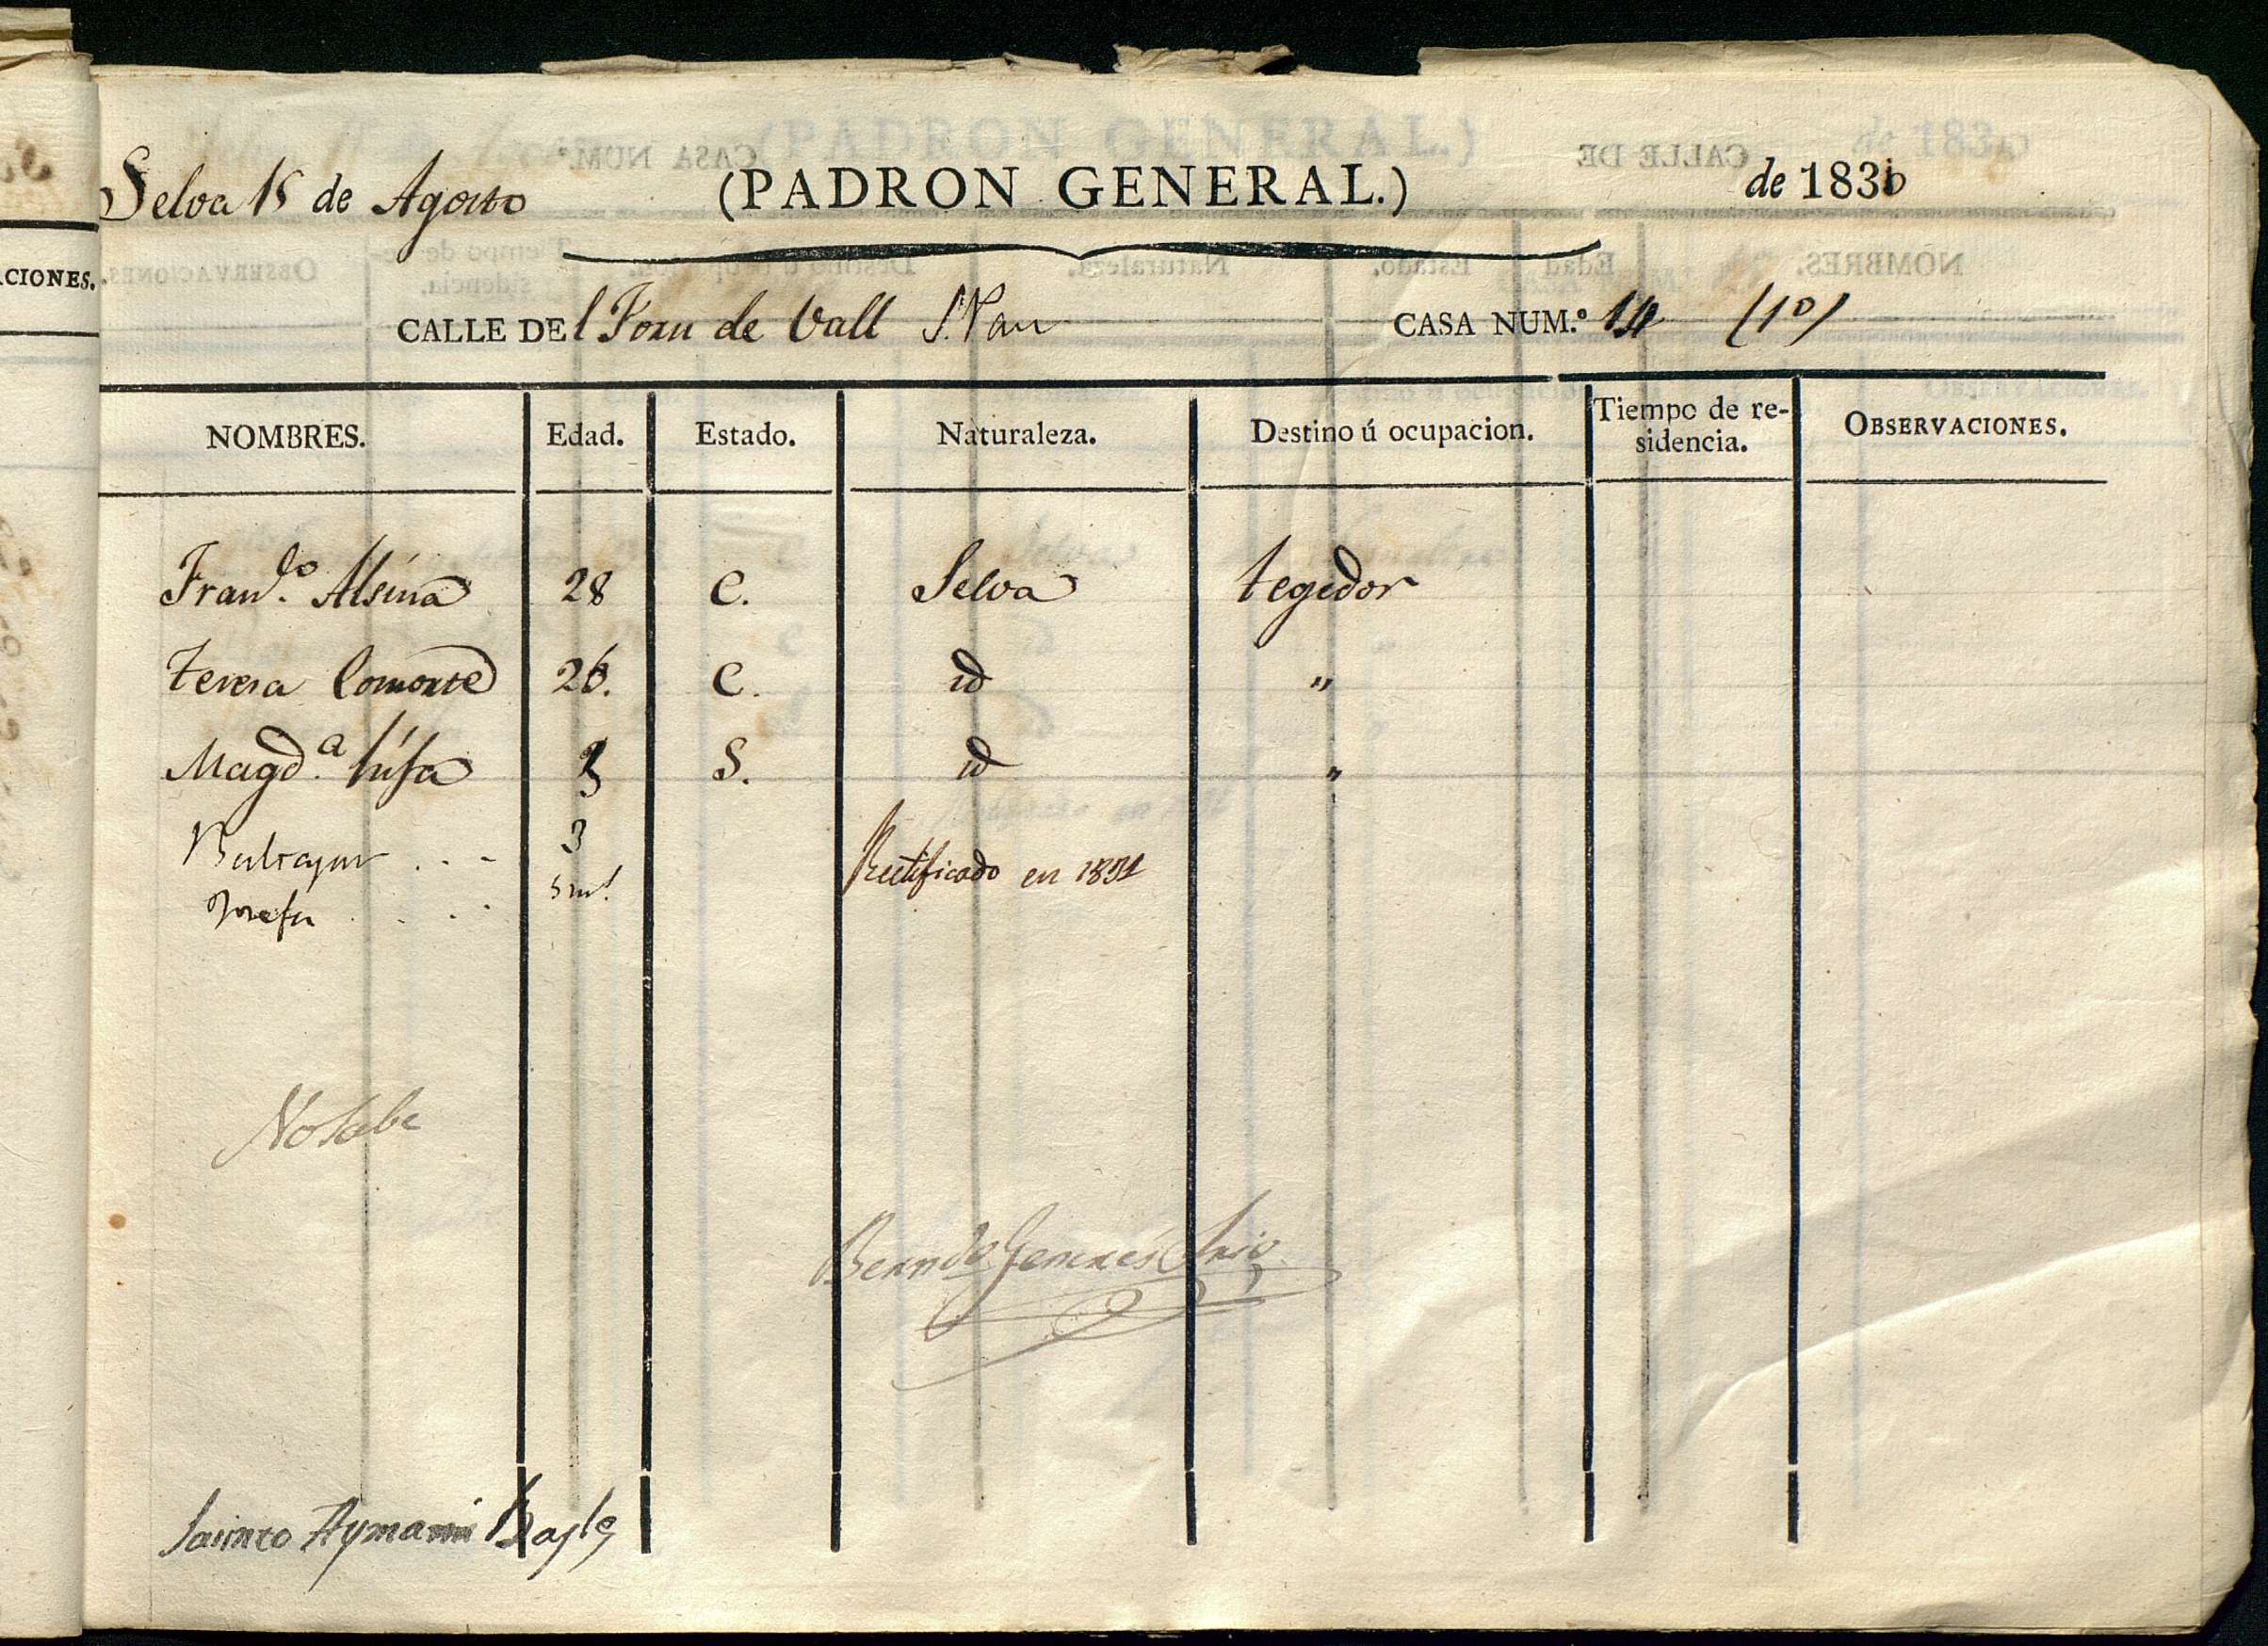 Selva 15 de Agosto (PADRON GENERAL.) de 1830
CALLE DEl Forn de Vall S. Pau CASA NUM.º 14 (1º)
NOMBRES. Edad. Estado. Naturaleza. Destino ú ocupacion. Tiempo de re-sidencia. OBSERVACIONES.
Fran.co Alsina 28 C. Selva tegedor
Teresa Comorte 26. C. id "
Magd.a hija 3 S. id "
Baltasar . . - 3
Rectificado en 1831
Josefa . . . 5 m.s
No sabe
Berndo Generés Srio
Jacinto Aymamí Bayle
ACIONES.